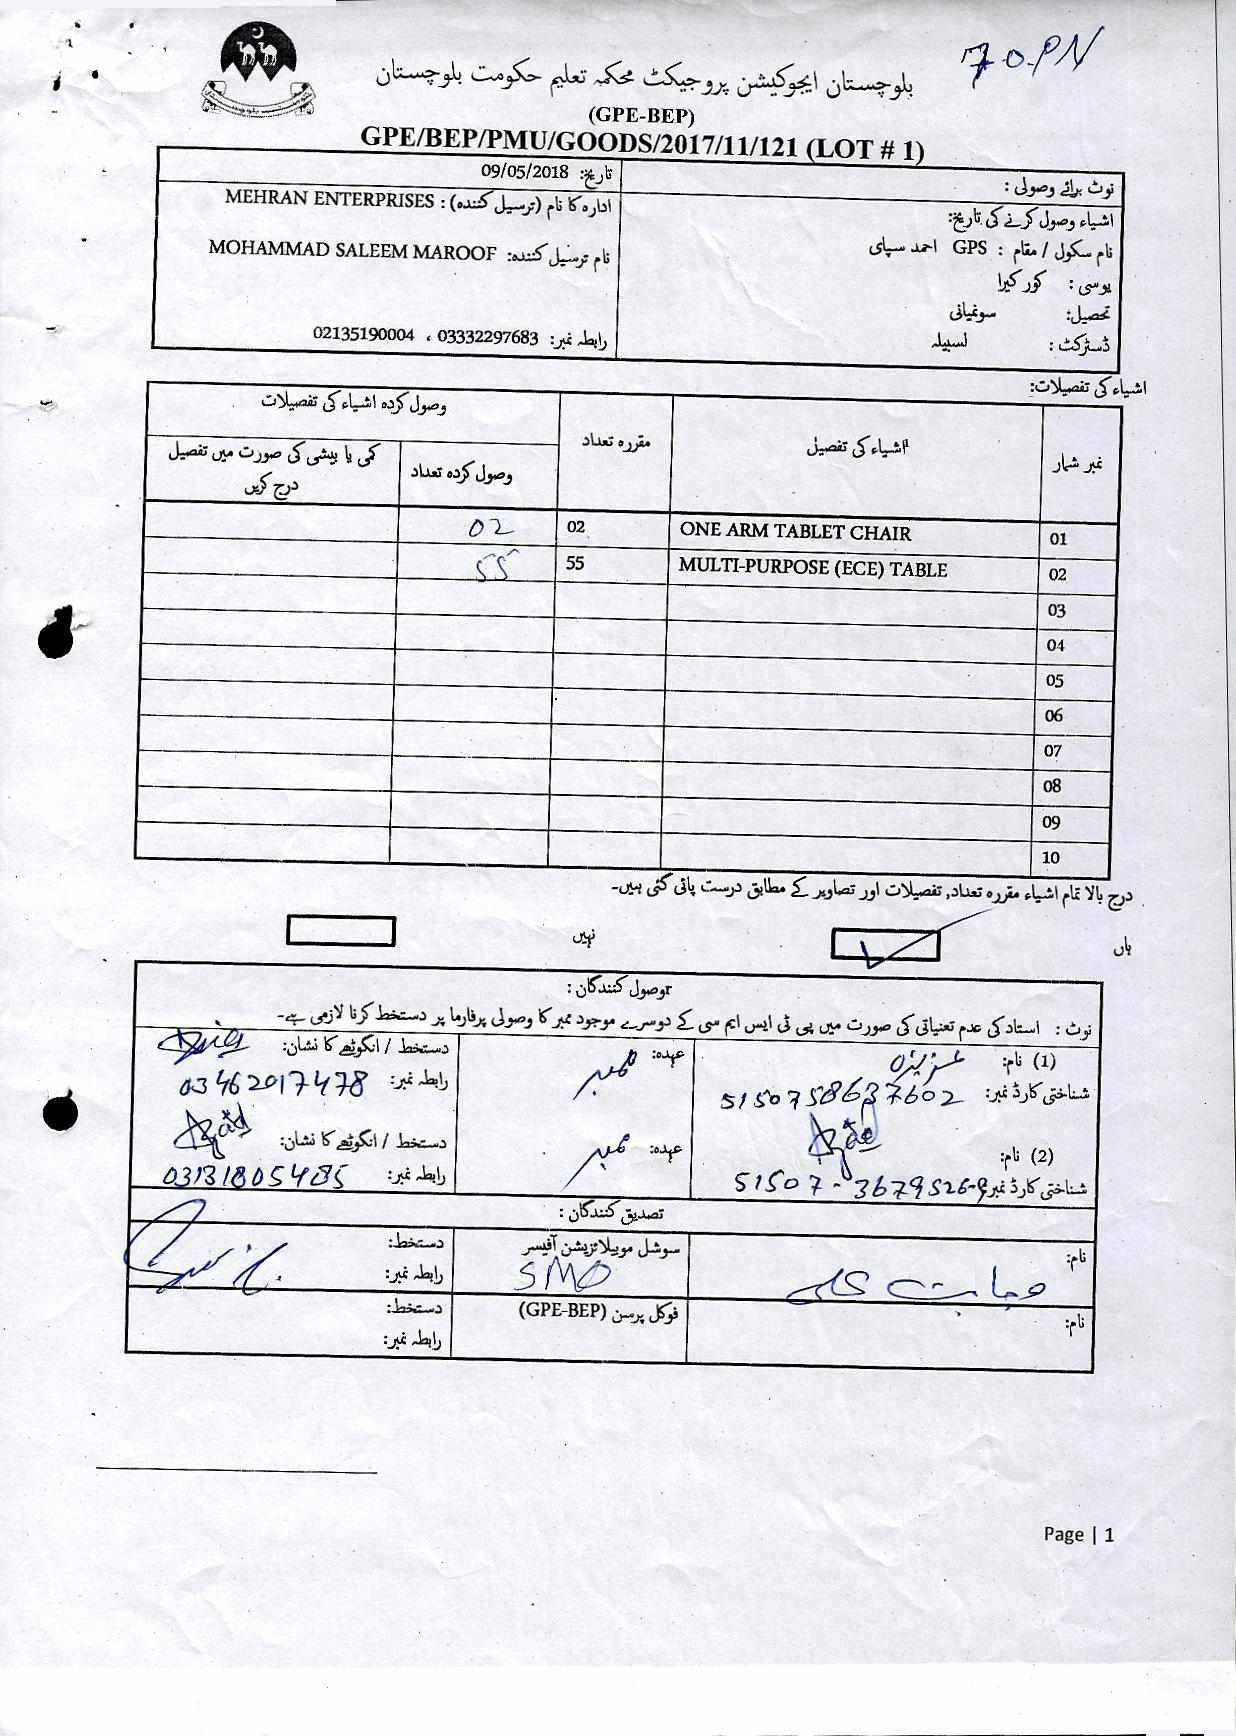 بلوچستان ایجوکیشن پروجیکٹ محکمہ تعلیم حکومت بلوچستان
(GPE-BEP)
GPE/BEP/PMU/GOODS/2017/11/121 (LOT # 1)
نوٹ برائے وصولی :
اشیاء وصول کرنے کی تاریخ:
نام سکول / مقام : GPS احمد سپای
یوسی : کور کیرا
تحصیل: سونمیانی
ڈسٹرکٹ : لسبیلہ
تاریخ: 09/05/2018
ادارہ کا نام (ترسیل کنندہ) : MEHRAN ENTERPRISES
نام ترسیل کنندہ: MOHAMMAD SALEEM MAROOF
رابطہ نمبر: 03332297683 ، 02135190004
اشیاء کی تفصیلات:
نمبر شمار اشیاء کی تفصیل مقررہ تعداد وصول کردہ اشیاء کی تفصیلات
وصول کردہ تعداد کمی یا بیشی کی صورت میں تفصیل درج کریں
01 ONE ARM TABLET CHAIR 02 02
02 MULTI-PURPOSE (ECE) TABLE 55 55
03
04
05
06
07
08
09
10
درج بالا تمام اشیاء مقررہ تعداد, تفصیلات اور تصاویر کے مطابق درست پائی گئی ہیں۔
ہاں نہیں
وصول کنندگان :
نوٹ : استاد کی عدم تعنیاتی کی صورت میں پی ٹی ایس ایم سی کے دوسرے موجود ممبر کا وصولی پرفارما پر دستخط کرنا لازمی ہے۔
(1) نام: عہدہ: ممبر دستخط / انگوٹھے کا نشان:
شناختی کارڈ نمبر: 5150758637602 رابطہ نمبر: 03462017478
(2) نام: Azad عہدہ: ممبر دستخط / انگوٹھے کا نشان: Azad
شناختی کارڈ نمبر: 51507-3679526-9 رابطہ نمبر: 03131805485
تصدیق کنندگان :
نام: سوشل موبیلائزیشن آفیسر دستخط:
SMO رابطہ نمبر:
نام: فوکل پرسن (GPE-BEP) دستخط:
رابطہ نمبر:
Page | 1